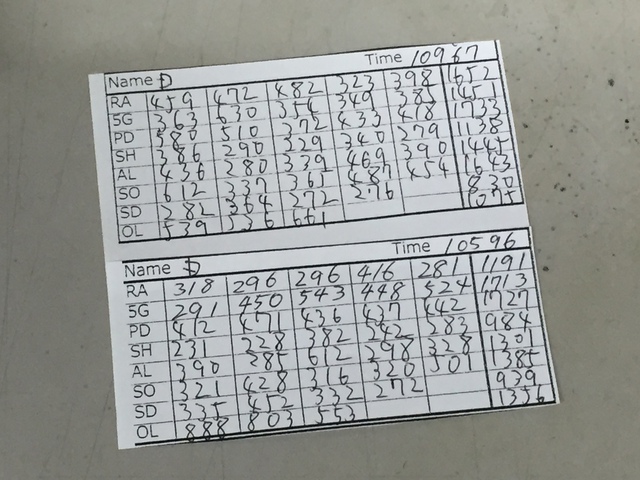 Name D Time 10967
RA 459 472 482 323 398 1652
SG 363 630 354 349 385 1451
PD 580 510 372 433 418 1733
SH 386 290 329 340 279 1138
AL 436 280 339 469 390 1445
SO 612 337 361 487 454 1643
SD 282 354 272 276 830
OL 539 536 661 1075
Name D Time 10596
RA 318 296 296 416 281 1191
SG 291 450 543 448 524 1713
PD 412 471 436 437 442 1727
SH 231 228 382 242 283 984
AL 390 285 612 298 328 1301
SO 321 428 316 320 501 1385
SD 335 452 332 272 939
OL 888 803 553 1356